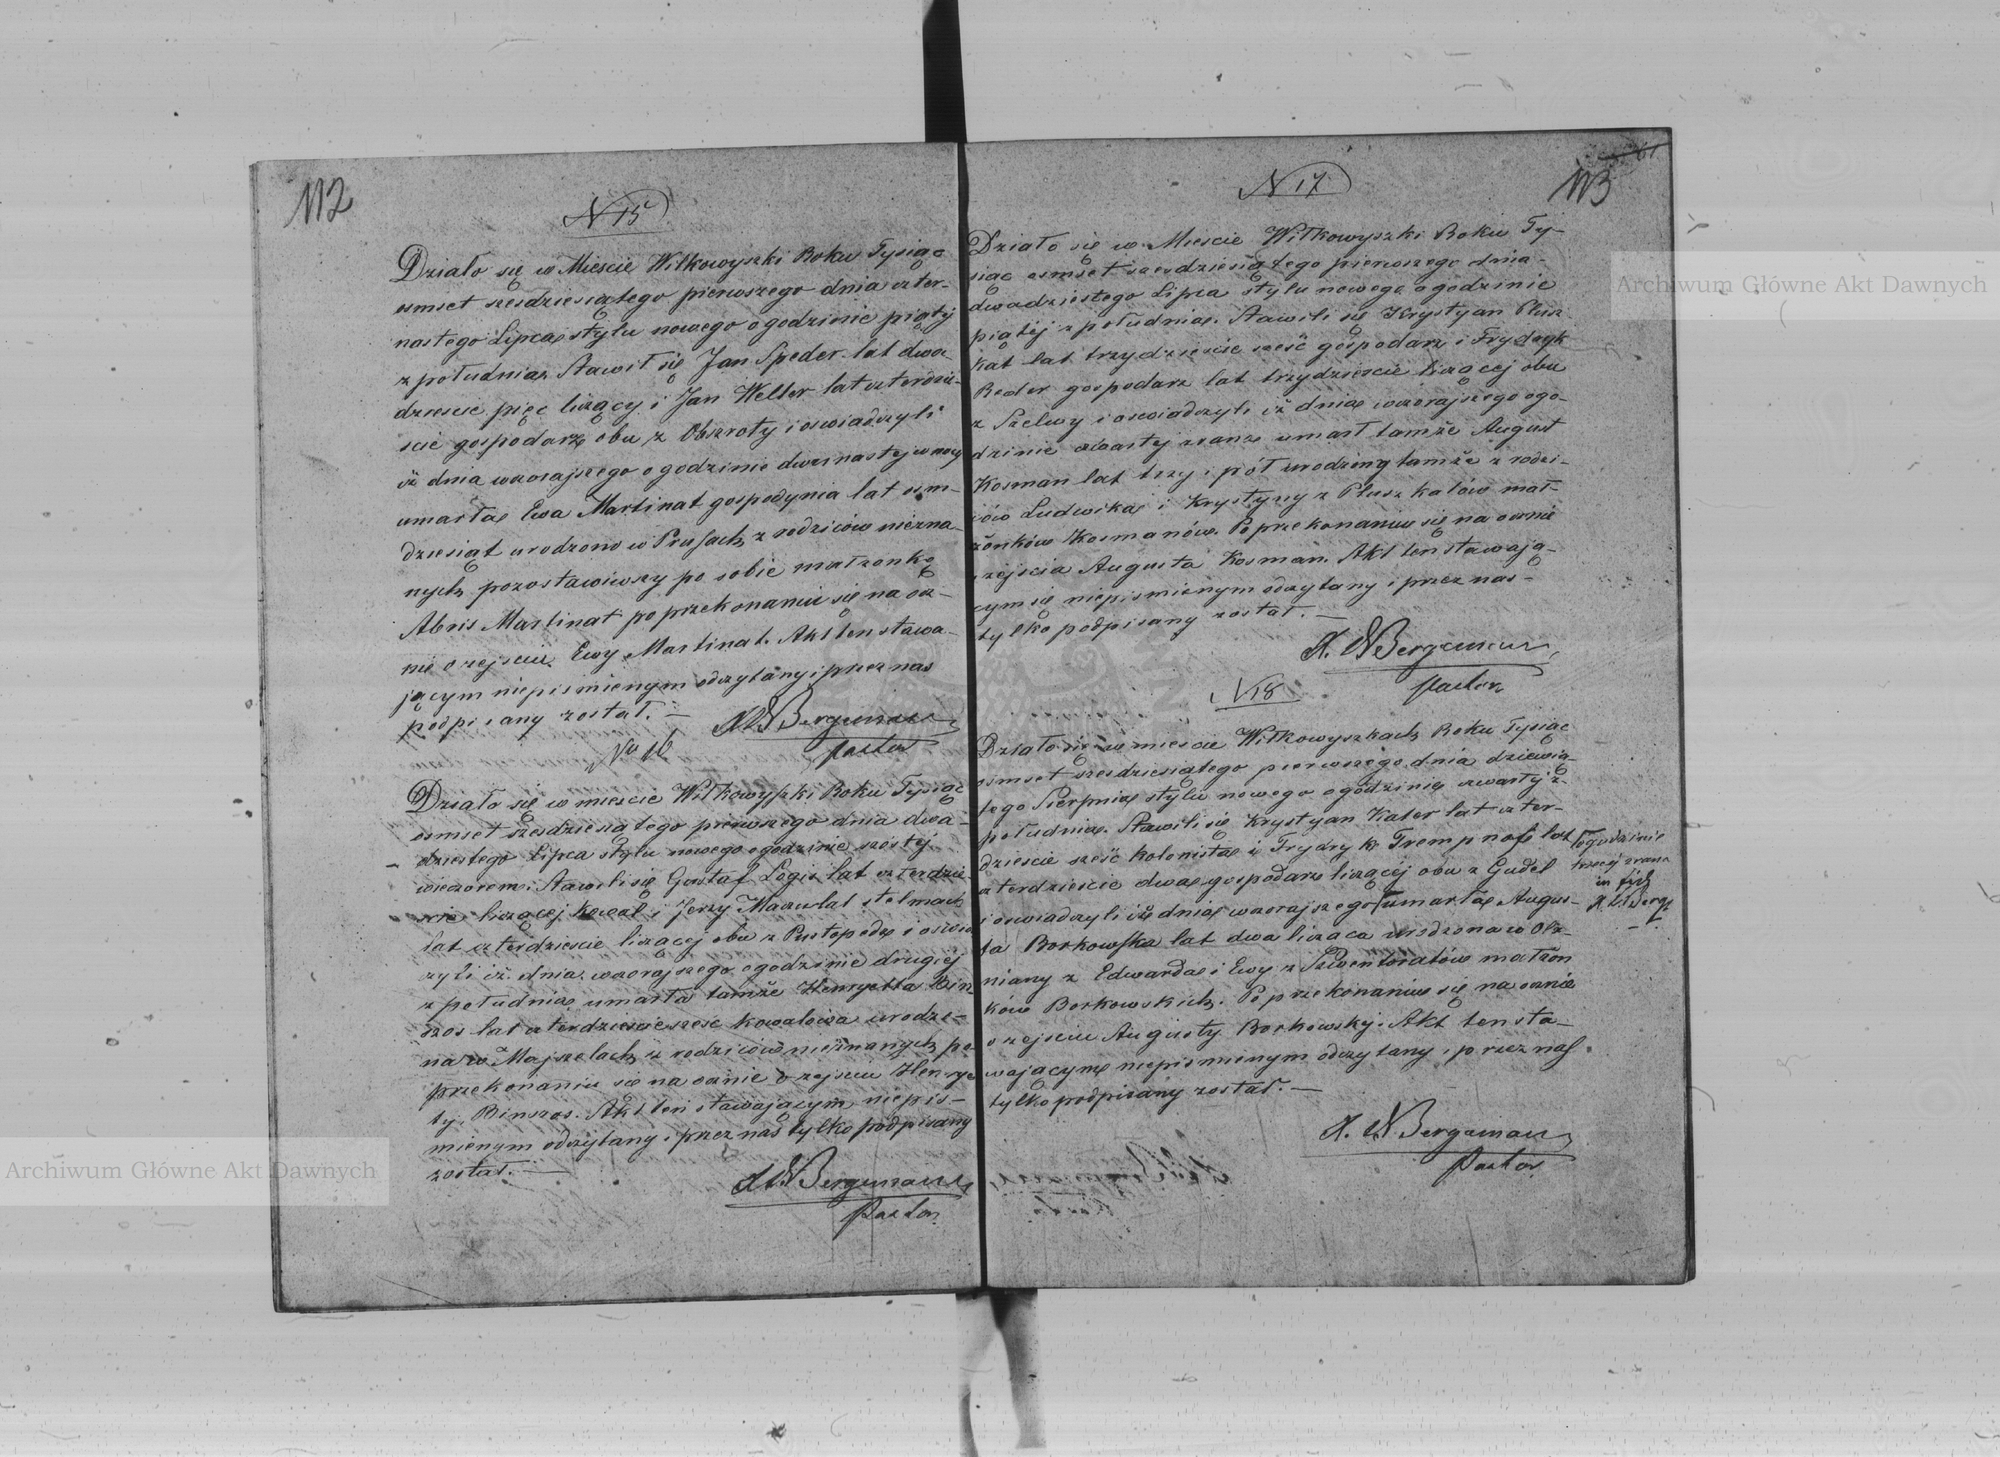 112
N 15
Działo się w Mieście Wiłkowyszki Roku Tysiąc
osmset szesdziesiątego pierwszego dnia czter-
nastego Lipca stylu nowego o godzinie piąty
z południa. Stawił się Jan Speder lat dwa-
dziescie pięc liczący i Jan Weller lat czterdzie-
ście gospodarze obu z Obszroty i oswiadczyli
iż dnia wczorajszego o godzinie dwunastej w nocy
umarła Ewa Martinat gospodynia lat osm-
dziesiąt urodzono w Prusach z rodziców niezna-
nych, pozostawiwszy po sobie małzonka
Abris Martinat po przekonaniu się na ocz-
nie o zejsciu Ewy Martinat. Akt ten stawa-
jącym niepismienym odczytany i przez nas
podpisany został. —
A W Bergemann
Pastor
No 16
Działo się w miescie Wiłkowyszki Roku Tysiąc
osmset szesdziesiątego pierwszego dnia dwa-
dziestego Lipca stylu nowego o godzinie szostej
wieczorem. Stawili się Gustaf Logis lat czterdzie-
liczącej kowal i Jerzy Mazulat stelmach
lat czterdziescie liczącej obu z Pustopedę i oswiad
czyli iż dnia wczorajszego o godzinie drugiej
z południa umarła tamże Henryetta Bin-
szos lat czterdziescie szesc kowalowa urodzo-
na w Majszelach, iz rodziców nieznanych, po
przekonaniu się na ocznie o zejsciu Henrye
ty Binszos. Akt ten stawającym niepis-
mienym odczytany i przez nas tylko podpisany
został. —
A W Bergemann
Pastor
61
113
N 17
Działo się w Miescie Wiłkowyszki Roku Ty-
siąc osmset szesdziesiątego pierwszego dnia
dwadziestego Lipca stylu nowego o godzinie
piątej z południa. Stawili się Krystyan Plusz
kat lat trzydziescie sześć gospodarz i Frydryk
Reder gospodarz lat trzydziescie liczącej obu
z Szelwy i oswiadczyli iż dnia wczorajszego o go-
dzinie czwartej zrana umarł tamże August
Kosman lat trzy i pół urodzony tamże z rodzi-
ców Ludwika i Krystyny z Pluszkatów mał-
żonków Kosmanów. Po przekonaniu się na ocznie
zejscia Augusta Kosman. Akt ten stawają-
cym się niepismienym odczytany i przez nas
tylko podpisany został. —
A. W Bergemann
Pastor
N 18
Działo się w miescie Wiłkowyszkach, Roku Tysiąc
osmset szesdziesiątego pierwszego dnia dziewią-
tego Sierpnia stylu nowego o godzinie czwarty z
południa. Stawili się Krystyan Kater lat czter-
dziescie sześć kolonista i Frydryk Trempnas lat
czterdziescie dwa gospodarz liczącej obu z Gudel
i oswiadczyli iż dnia wczorajszego umarła Augus-
ta Borkowska lat dwa licząca urodzona w Olz-
niany z Edwarda i Ewy z Szwentoratów małżon
ków Borkowskich. Po przekonaniu się na ocznie
o zejsciu Augusty Borkowskj. Akt ten sta-
wającymę niepismienym odczytany i przez nas
tylko podpisany został. —
o godzinie
trzecij zrana
A. W Berg
A. W Bergemann
Pastor
Archiwum Główne Akt Dawnych
Archiwum Główne Akt Dawnych